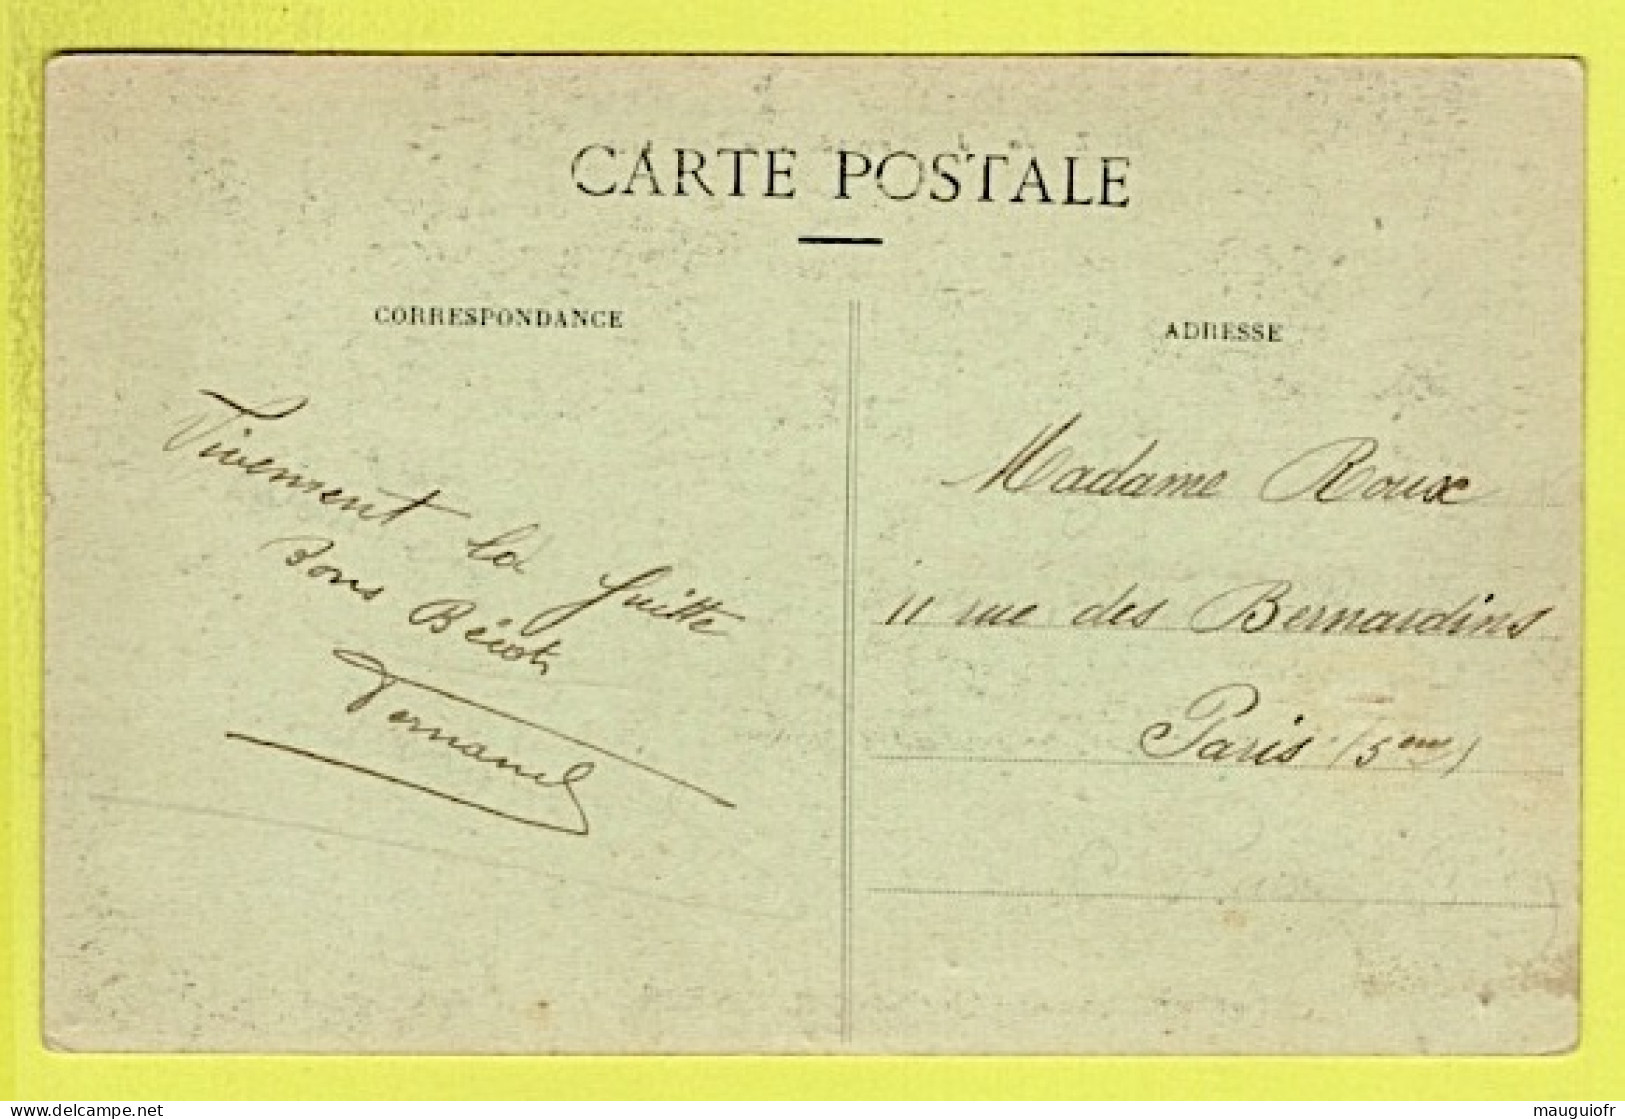 CARTE POSTALE
CORRESPONDANCE
ADRESSE
Vivement la
Bons Bécots
Fernand
Madame Roux
11 rue des Bernardins
Paris (5eme)
www.delcampe.net
mauguiofr